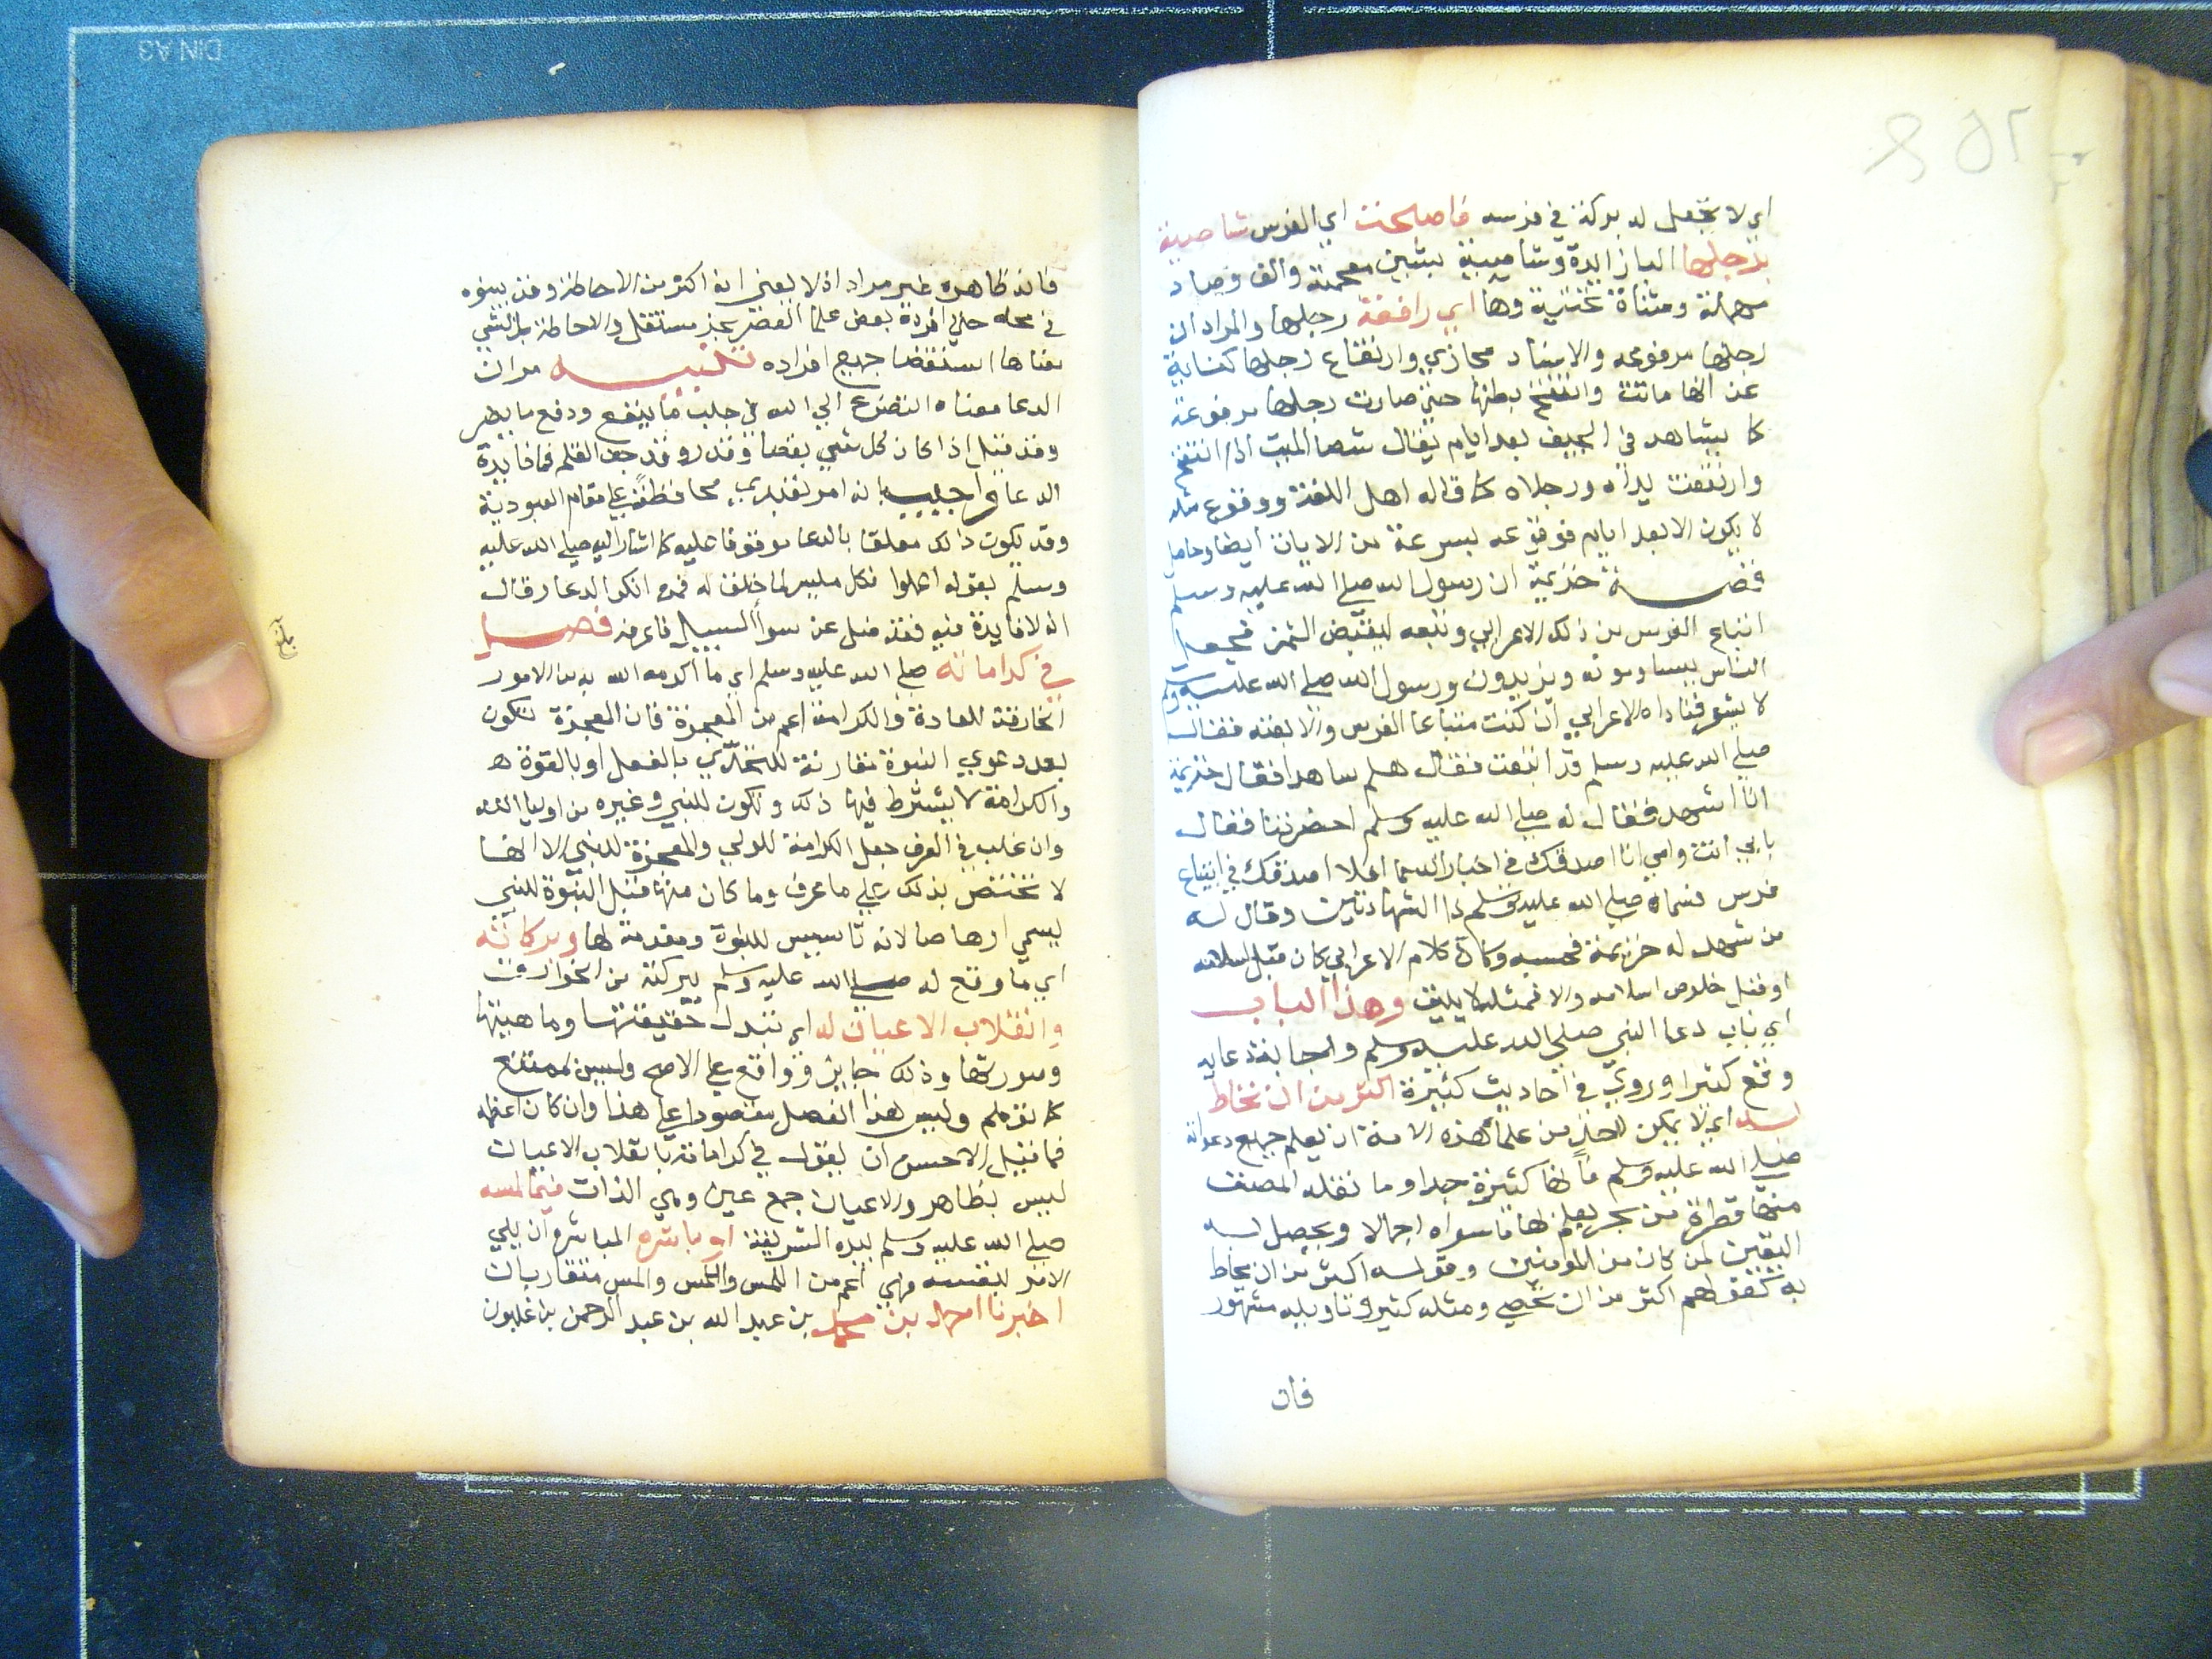 اي لا تجعل له بركة في فرسه فاصبحت اي الفرس شاصية
برجلها الباء زايدة وشاصية بشين معجمة والف وصاد
مهملة ومثناة تحتية وها اي رافعة رجلها والمراد ان
رجلها مرفوعه والاسناد مجازي وارتفاع رجلها كناية
عن انها ماتت وانتفخ بطنها حتي صارت رجلها مرفوعة
كما يشاهد في الجيف بعد ايام يقال شصا الميت اذا انتفخ
وارتفعت يداه ورجلاه كما قاله اهل اللغة ووقوع مثله
لا يكون الا بعد ايام فوقوعه بسرعة من الايات ايضا وحاصل
قصة خزيمة ان رسول الله صلي الله عليه وسلم
ابتاع الفرس من ذلك الاعرابي وتبعه ليقبض الثمن فجعل
الناس يساومونه ويزيدون ورسول الله صلي الله عليه وسلم
لا يشعر فناداه الاعرابي ان كنت مبتاعا الفرس والا بعته فقال
صلي الله عليه وسلم قد ابتعت فقال هلم شاهدا فقال خزيمة
انا اشهد فقال له صلي الله عليه وسلم احضرتنا فقال
بابي انت وامي انا اصدقك في اخبار السما افلا اصدقك في ابتياع
فرس فسماه صلي الله عليه وسلم ذا الشهادتين وقال له
من شهد له خزيمة فحسبه وكان كلام الاعرابي كان قبل اسلامه
او قبل خلوص اسلامه والا فمثله لا يليق وهذا الباب
اي باب دعا النبي صلي الله عليه وسلم واجابة دعايه
وقع كثيرا وروي في احاديث كثيرة اكثر من ان تحاط
به اي لا يمكن لاحد من علما هذه الامة ان يعلم جميع دعواته
صلي الله عليه وسلم فانها كثيرة جدا وما نقله المصنف
منها قطرة من بحر يعلم بها ما سواه اجمالا ويحصل به
اليقين لمن كان من المومنين وقوله اكثر من ان يحاط
به كقولهم اكثر من ان تحصي ومثله كثير وتاويله مشهور
فان
فان ظاهره غير مراد اذ لا يعني انه اكثر من الاحاطة وقد بينوه
في محله حتي افرده بعض علما العصر بجز مستقل والاحاطة بالشي
معناها استقصا جميع افراده تنبيه مر ان
الدعا معناه التضرع الي الله في جلب ما ينفع ودفع ما يضر
وقد قيل اذا كان كل شي بقضا وقدر وقد جف القلم فما فايدة
الدعا واجيب بانه امر تعبدي محافظة علي مقام العبودية
وقد يكون ذلك معلقا بالدعا موقوفا عليه كما اشار اليه صلي الله عليه
وسلم بقوله اعملوا فكل ميسر لما خلق له فمن انكر الدعا وقال
انه لا فايدة فيه فقد ضل عن سوا السبيل فاعرفه فصل
في كراماته صلي الله عليه وسلم اي ما اكرمه الله به من الامور
الخارقة للعادة والكرامة اعم من المعجزة فان المعجزة تكون
بعد دعوي النبوة مقارنة للتحدي بالفعل او بالقوة
والكرامة لا يشترط فيها ذلك وتكون للنبي وغيره من اوليا الله
وان غلب في العرف جعل الكرامة للولي والمعجزة للنبي الا انها
لا تختص بذلك علي ما عرف وما كان منها قبل النبوة للنبي
يسمي ارهاصا لانه تاسيس للنبوة ومقدمة لها وبركاته
اي ما وقع له صلي الله عليه وسلم ببركته من الخوارق
وانقلاب الاعيان له اي تبدل حقيقتها وماهيتها
وصورتها وذلك جايز وواقع علي الاصح وليس بممتنع
كما توهم وليس هذا الفصل مقصودا علي هذا وان كان اعظمه
فما قيل الاحسن ان يقول في كراماته بانقلاب الاعيان
ليس بظاهر والاعيان جمع عين وهي الذات فيما لمسه
صلي الله عليه وسلم بيده الشريفة او باشره المباشرة ان يلي
الامر بنفسه فهي اعم من اللمس واللمس والمس متقاربان
اخبرنا احمد بن محمد بن عبد الله بن عبد الرحمن بن غلبون
بلغ
DIN A3